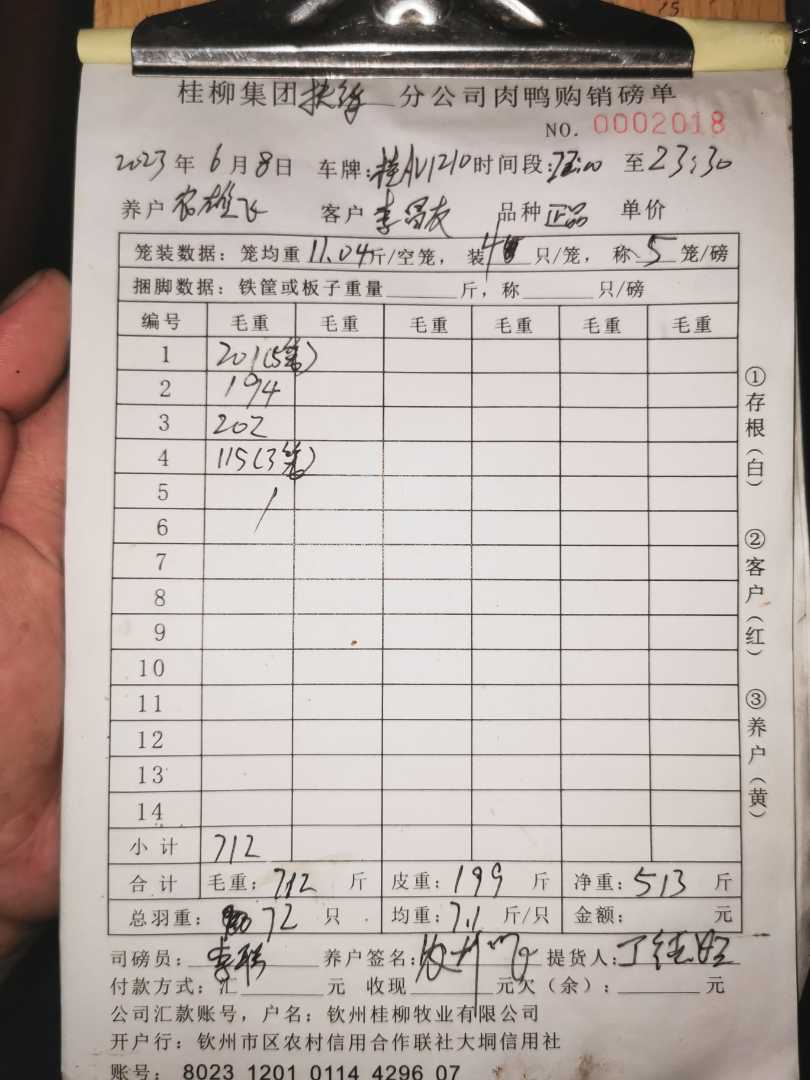 桂柳集团扶绥分公司肉鸭购销磅单
NO. 0002018
2023年6月8日 车牌:桂AV1210时间段: 至23:30
养户 农雄飞 客户 李昌友 品种 正品 单价
笼装数据：笼均重11.04斤/空笼，装4只/笼，称5笼/磅
捆脚数据：铁筐或板子重量 斤，称 只/磅
编号 毛重 毛重 毛重 毛重 毛重 毛重
1 201(5笼)
2 194
3 202
4 115(3笼)
5
6
7
8
9
10
11
12
13
14
小计 712
合计 毛重：712 斤 皮重：199 斤 净重：513 斤
总羽重： 72 只 均重：7.1斤/只 金额： 元
司磅员： 养户签名： 提货人：
付款方式：汇 元 收现 元欠（余）： 元
公司汇款账号，户名；钦州桂柳牧业有限公司
开户行：钦州市区农村信用合作联社大垌信用社
账号： 8023 1201 0114 4296 07
①存根（白）
②客户（红）
③养户（黄）